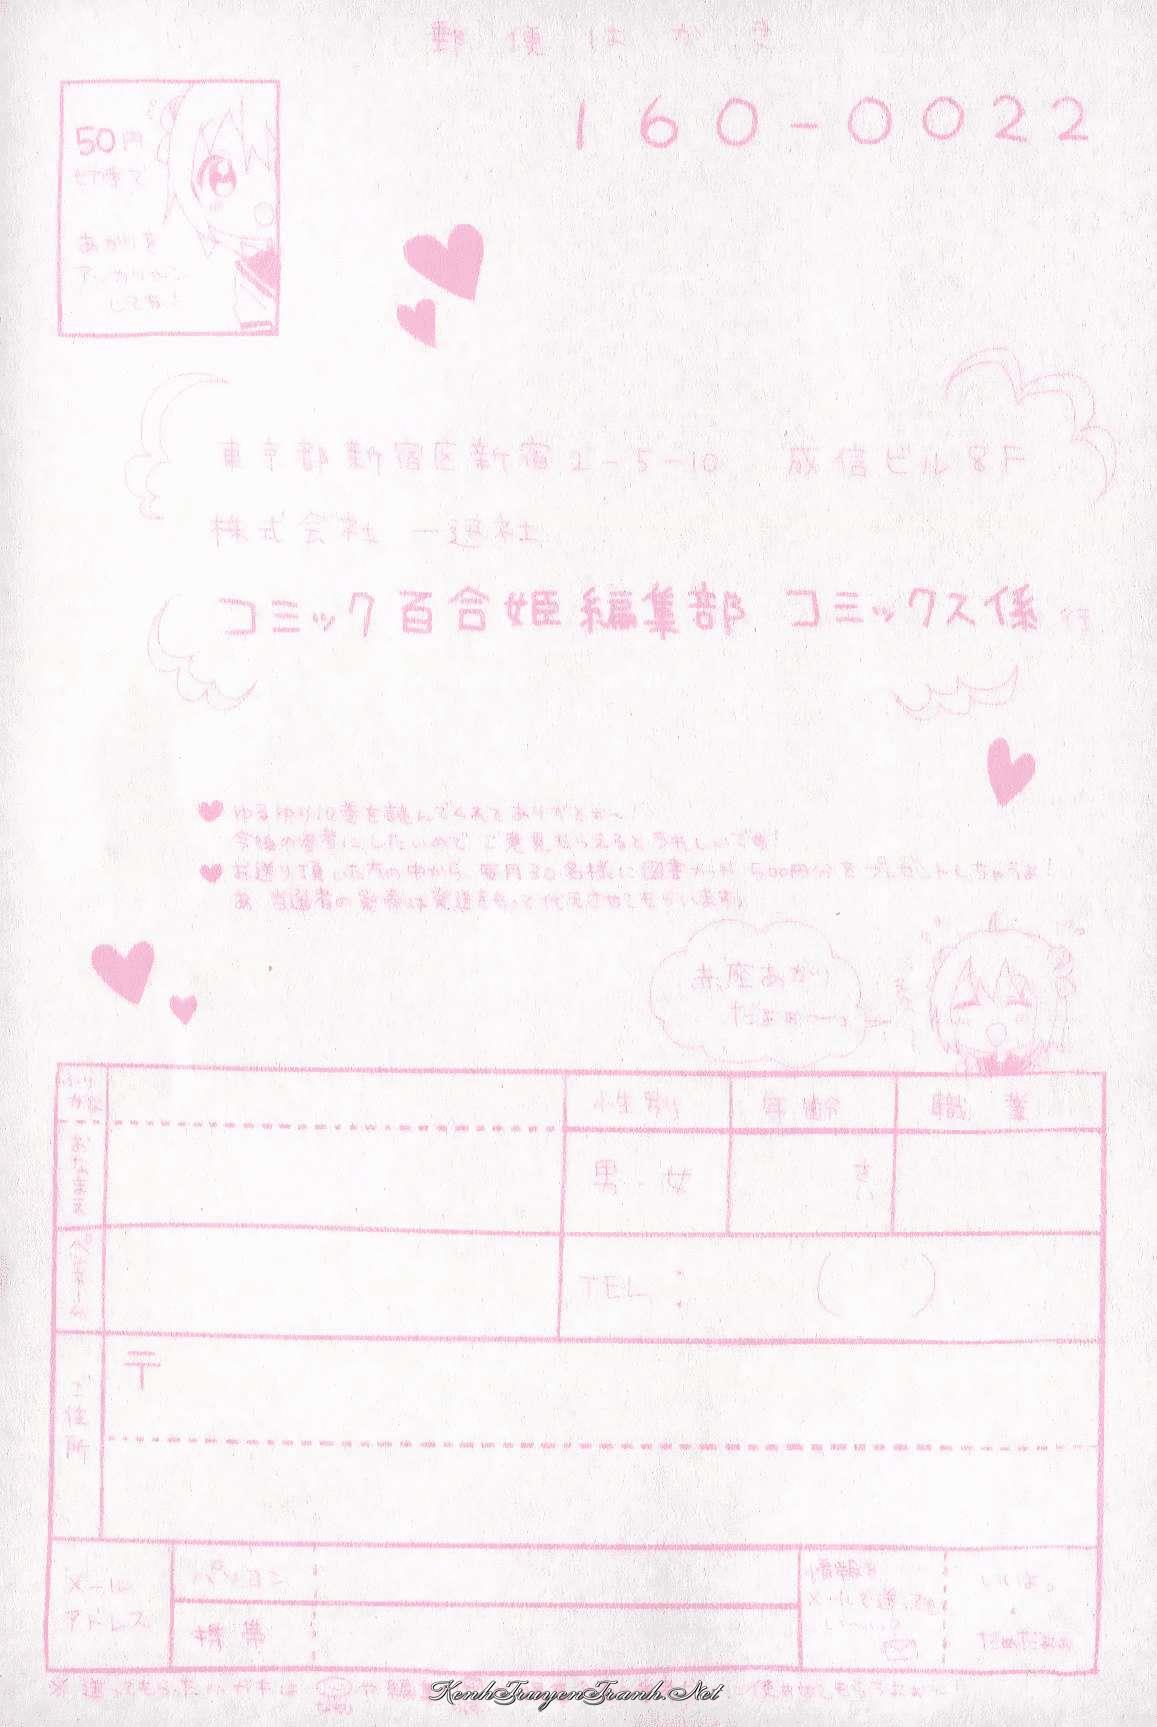 郵便はがき
160-0022
50円
切手
あかりを
してね!
東京都新宿区新宿2-5-10 成信ビル8F
株式会社 一迅社
コミック百合姫編集部 コミックス係 行
ゆるゆり10巻を読んでくれてありがとか〜!
今後の参考にしたいので ご意見もらえるとうれしいです!
お送り頂いた方の中から 毎月30名様に図書カード500円分をプレゼントしちゃうよ!
あ 当選者の発表は発送をもって代えさせてもらいます。
赤座あかり
だよぉ〜っ
ふりがな
おなまえ
性別
年齢
職業
男・女
さい
ペンネーム
TEL: ( )
ご住所
〒
メール
アドレス
パソコン
携帯
情報を
メールで送っても
いいっ?
いいよ。
だめだよぉ
※送ってもらったハガキは
KenhTruyenTranh.Net